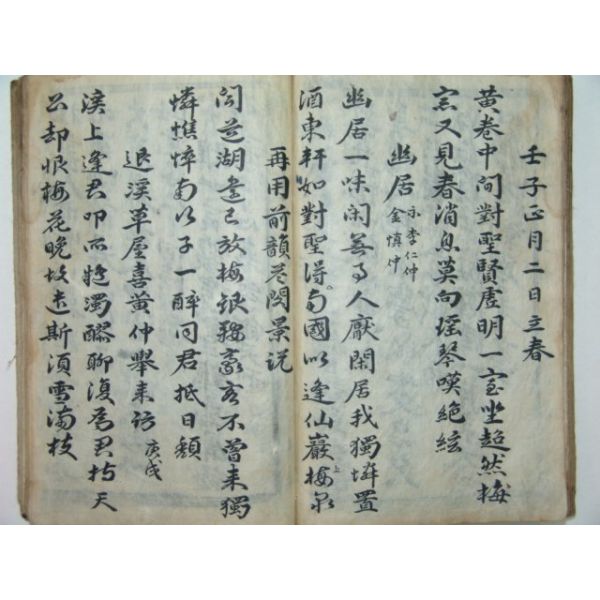 壬子正月二日立春
黄卷中間對聖賢虛明一室坐超然梅
窓又見春消息莫向瑶琴嘆絶絃
幽居 示李仁仲
金愼仲
幽居一味閑無事人厭閑居我獨憐置
酒東軒如對聖得南國似逢仙巖梅上泉
再用前韻答閔景説
聞道湖邊已放梅銀鞍豪客不曾来獨
憐憔悴南行子一醉同君抵日頹
退溪草屋喜黄仲擧来訪 庚戌
溪上逢君叩所疑濁醪聊復爲君持天
公却恨梅花晚故遣斯須雪滿枝